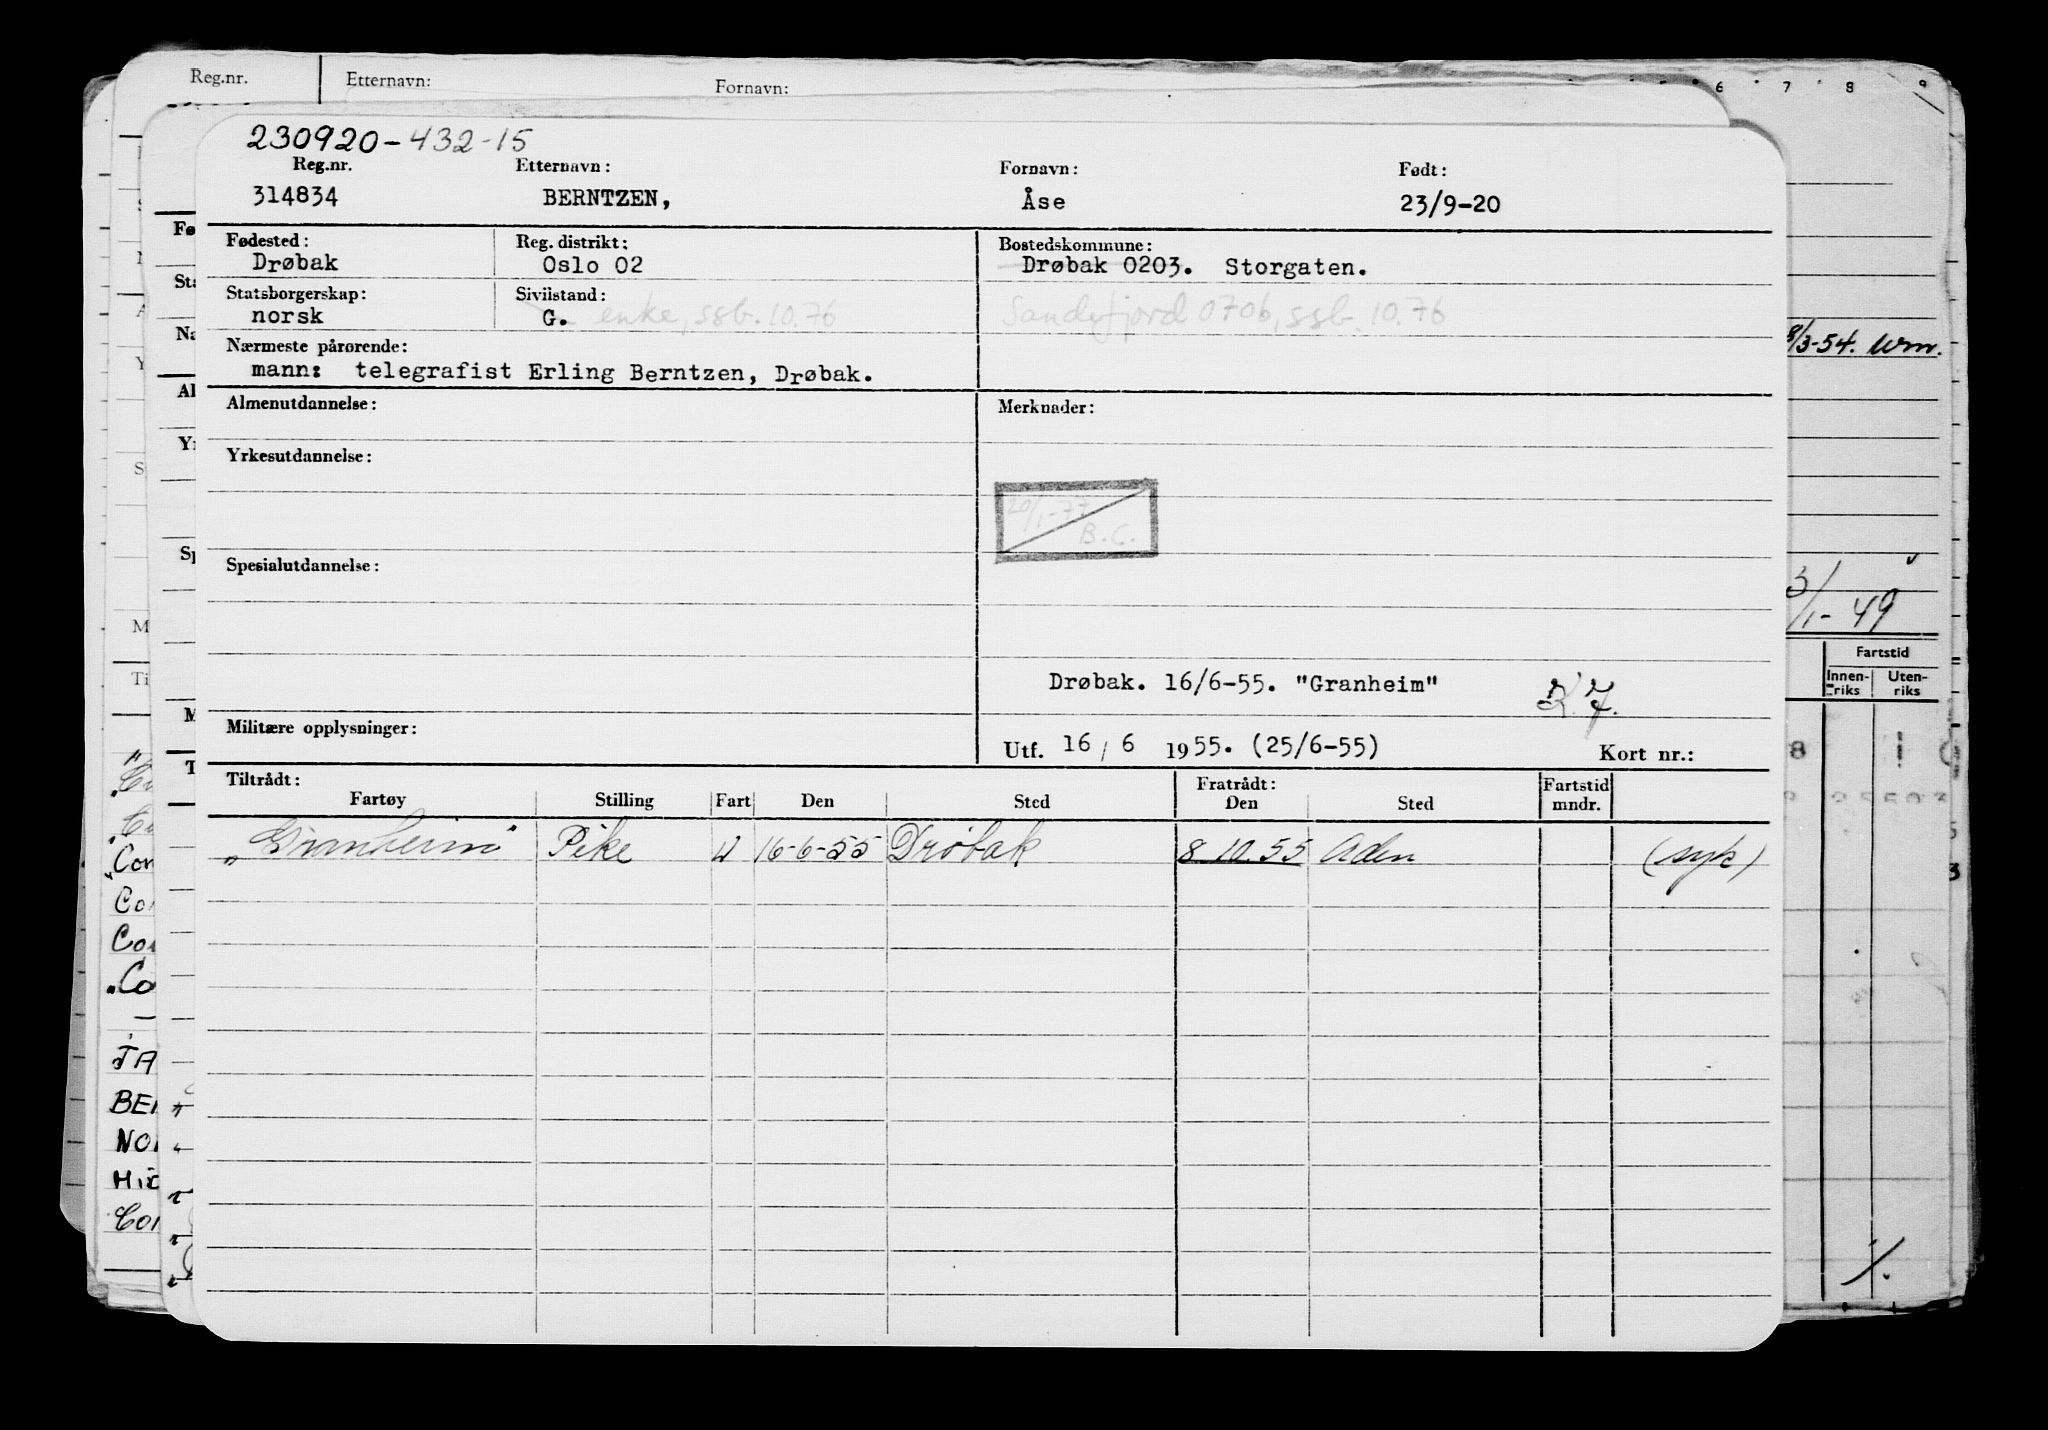 Reg.nr. Etternavn: Fornavn: 6 7 8 9
230920-432-15
Reg.nr. Etternavn: Fornavn: Født:
314834 BERNTZEN, Åse 23/9-20
Fødested: Reg. distrikt: Bostedskommune:
Drøbak Oslo 02 Drøbak 0203. Storgaten.
Statsborgerskap: Sivilstand:
norsk G. enke, ssb. 10.76 Sandefjord 0706, ssb. 10.76
Nærmeste pårørende:
mann: telegrafist Erling Berntzen, Drøbak.
8/3-54. Wm.
Almenutdannelse: Merknader:
Yrkesutdannelse:
20/1-77
B.C.
Spesialutdannelse:
3/1-49
Drøbak. 16/6-55. "Granheim" K.J.
Fartstid
Innen-riks Uten-riks
Militære opplysninger:
Utf. 16 / 6 1955. (25/6-55) Kort nr.:
Tiltrådt: Fratrådt: Fartstid
Fartøy Stilling Fart Den Sted Den Sted mndr.
„Granheim" Pike U 16-6-55 Drøbak 8.10.55 Aden (syk)